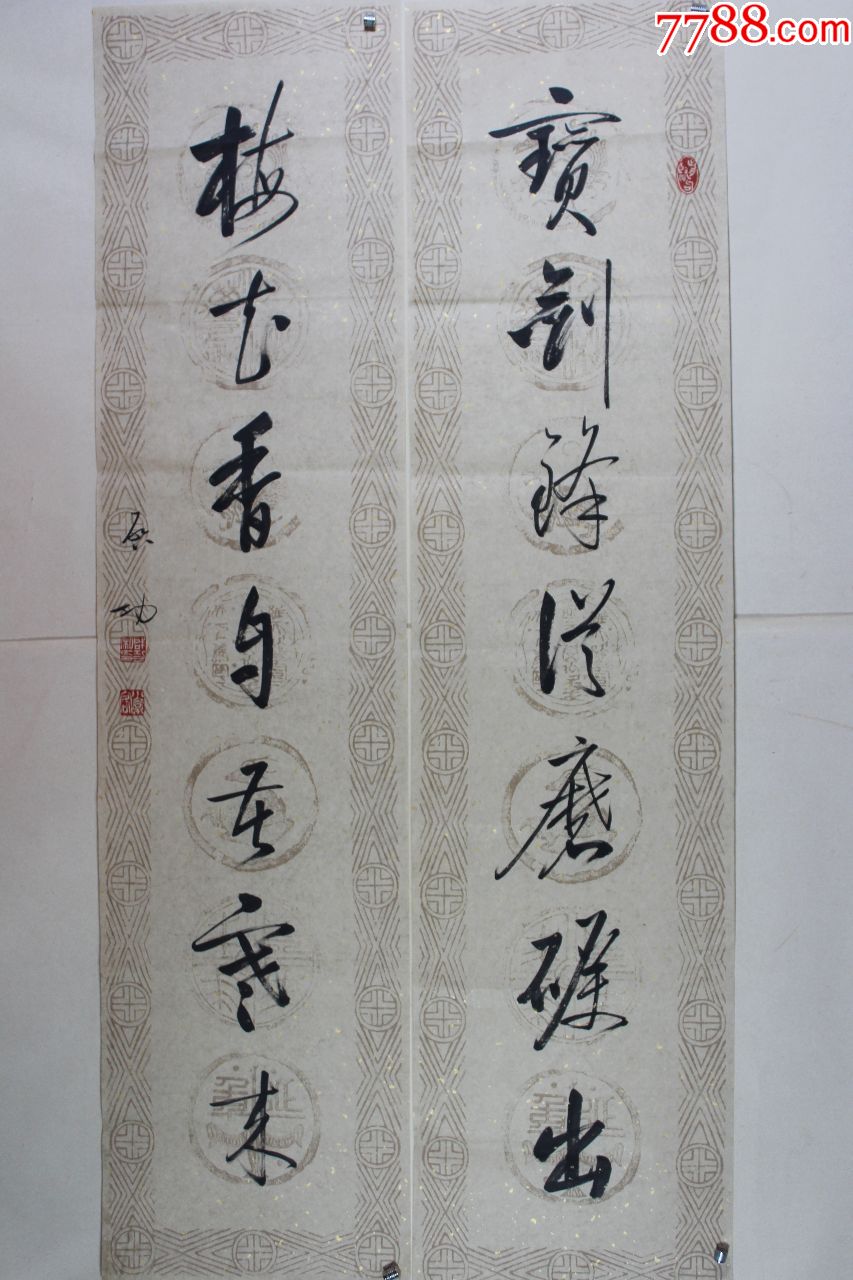 7788.com
寳劍鋒從磨礪出
梅花香自苦寒來
啟功